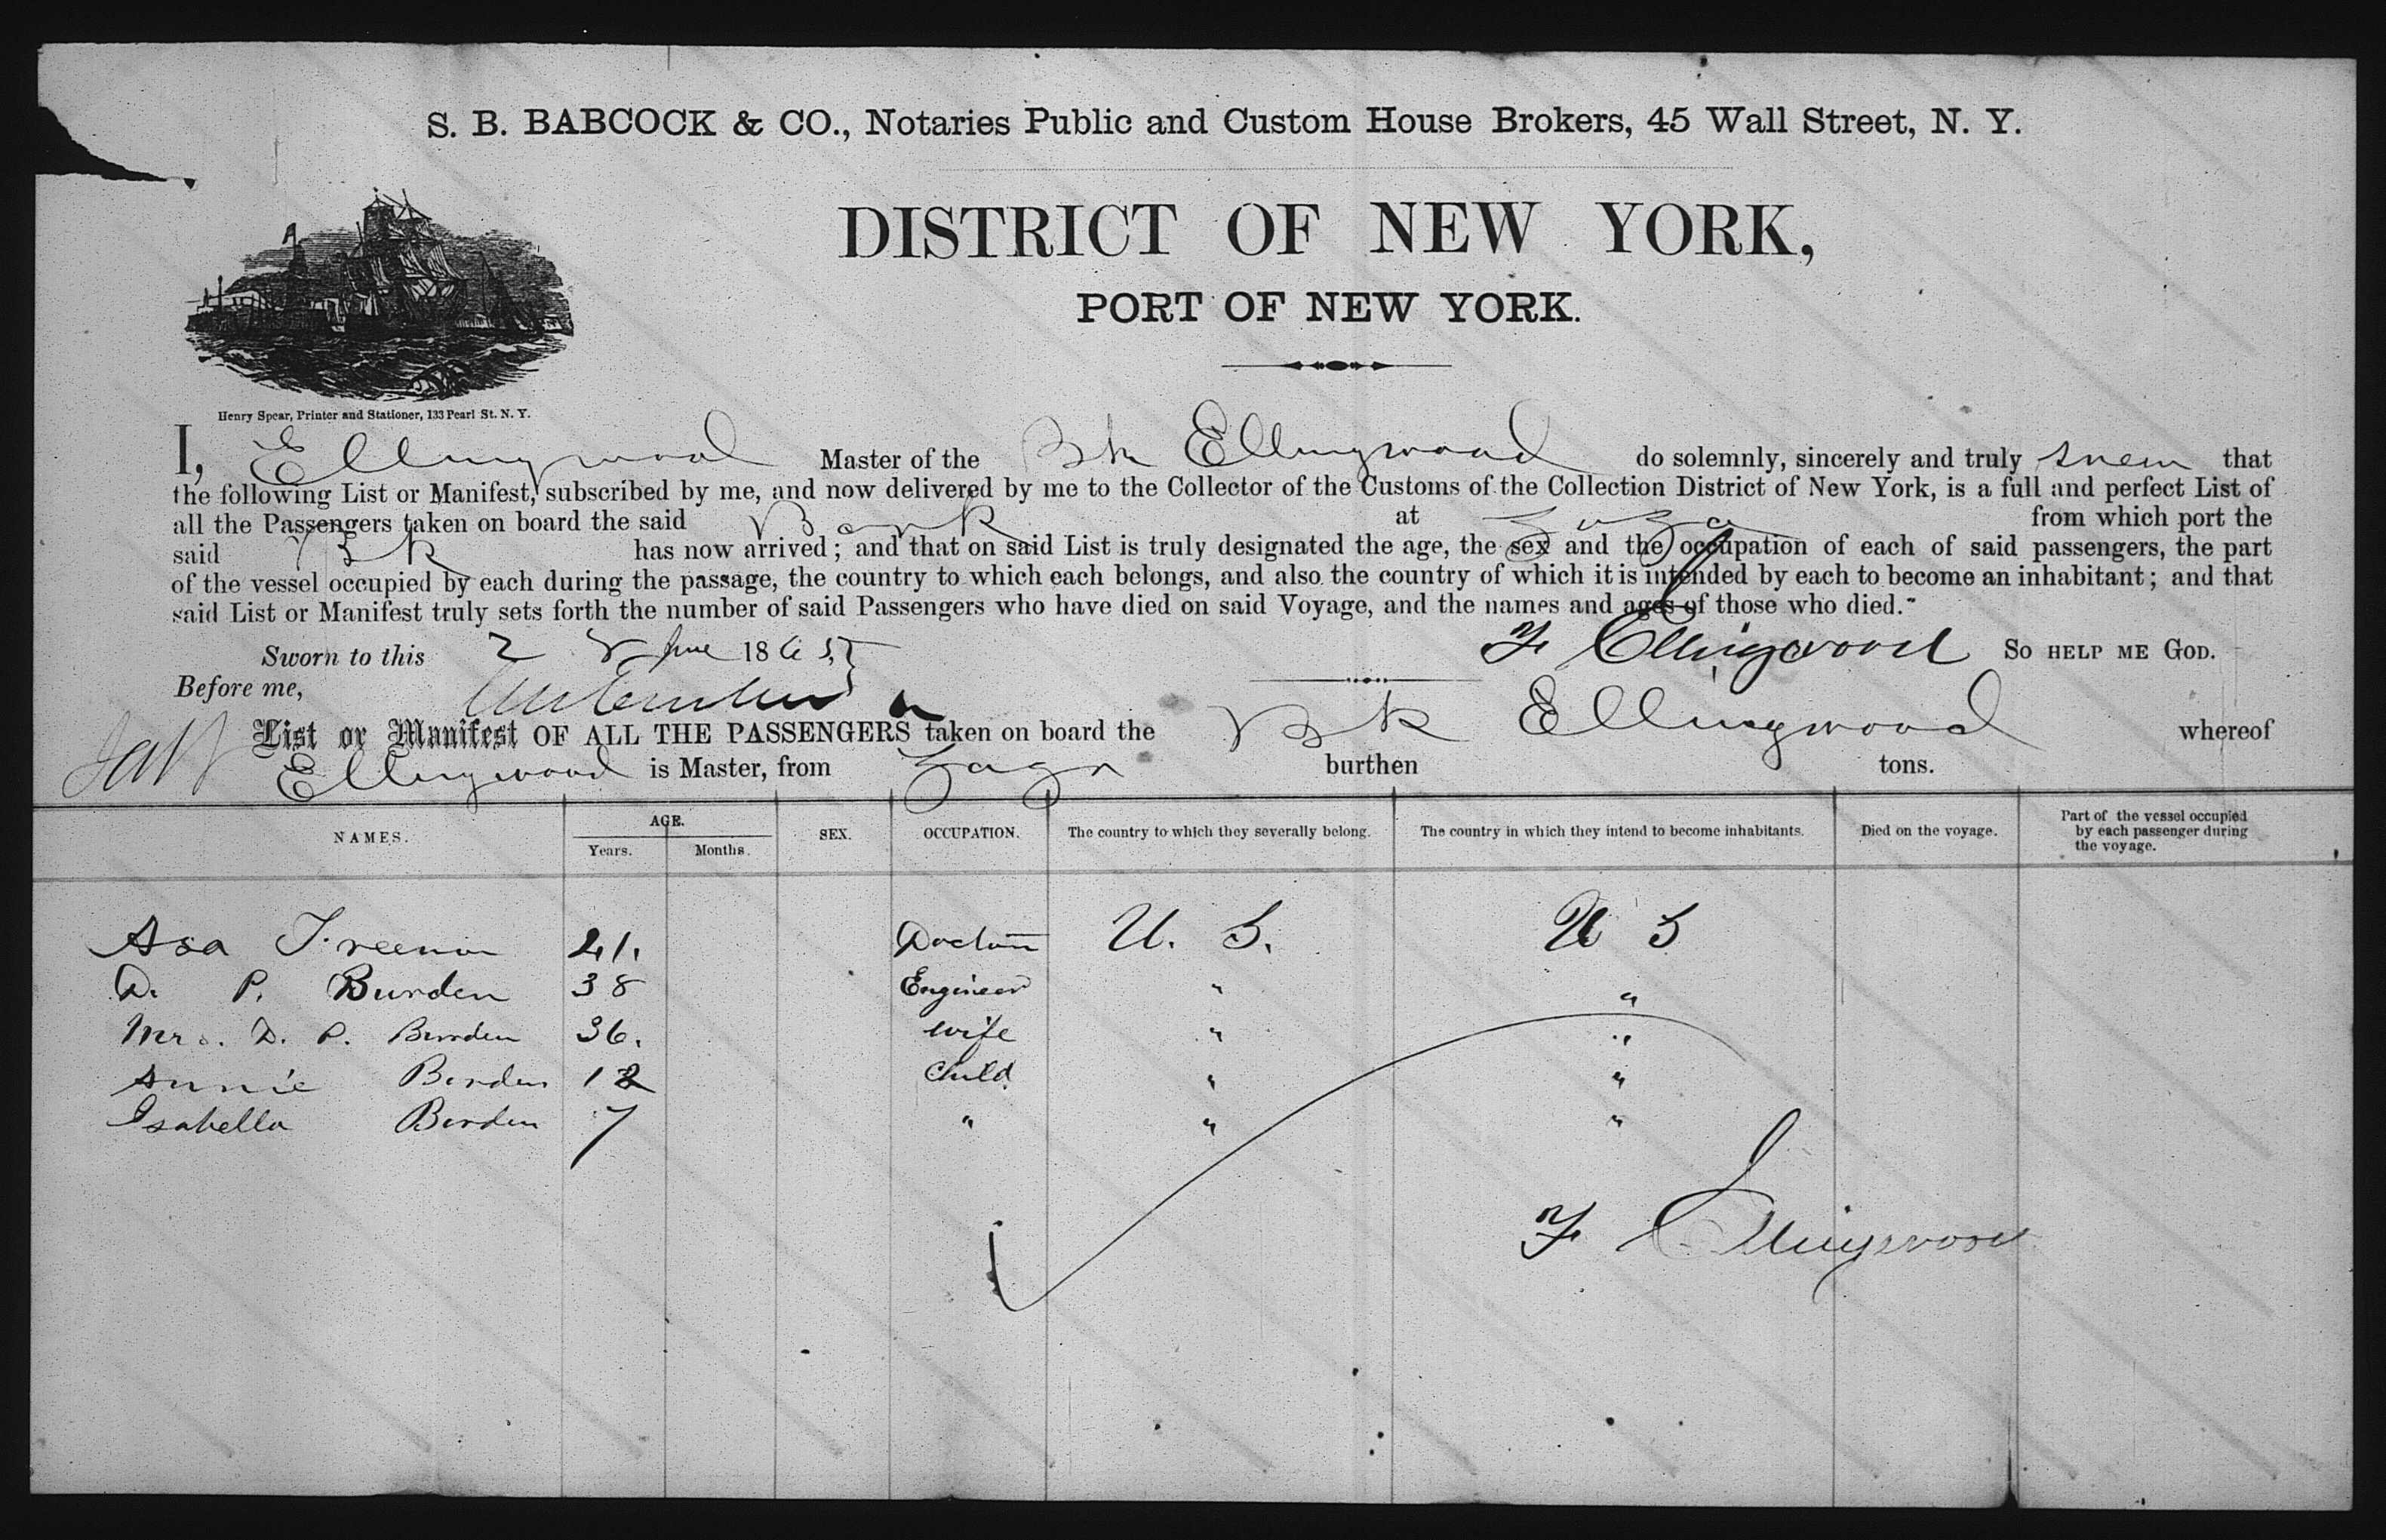 S. B. BABCOCK & CO., Notaries Public and Custom House Brokers, 45 Wall Street, N. Y.
DISTRICT OF NEW YORK,
PORT OF NEW YORK.
Henry Spear, Printer and Stationer, 133 Pearl St. N. Y.
I, Ellingwood Master of the Bk Ellingwood do solemnly, sincerely and truly that
the following List or Manifest, subscribed by me, and now delivered by me to the Collector of the Customs of the Collection District of New York, is a full and perfect List of
all the Passengers taken on board the said Bark at Zaza from which port the
said Bk has now arrived; and that on said List is truly designated the age, the sex and the occupation of each of said passengers, the part
of the vessel occupied by each during the passage, the country to which each belongs, and also the country of which it is intended by each to become an inhabitant; and that
said List or Manifest truly sets forth the number of said Passengers who have died on said Voyage, and the names and ages of those who died.
Sworn to this 2 June 1865 F Ellingwood SO HELP ME GOD.
Before me,
List or Manifest OF ALL THE PASSENGERS taken on board the Bk Ellingwood whereof
Ellingwood is Master, from Zaza burthen tons.
NAMES. AGE. Years. Months. SEX. OCCUPATION. The country to which they severally belong. The country in which they intend to become inhabitants. Died on the voyage. Part of the vessel occupied by each passenger during the voyage.
Asa Freeman 21. Doctor U. S. U S
D. P. Burden 38 Engineer " "
Mrs. D. P. Burden 36. wife " "
Annie Burden 12 Child " "
Isabella Burden 7 " " "
F Ellingwood